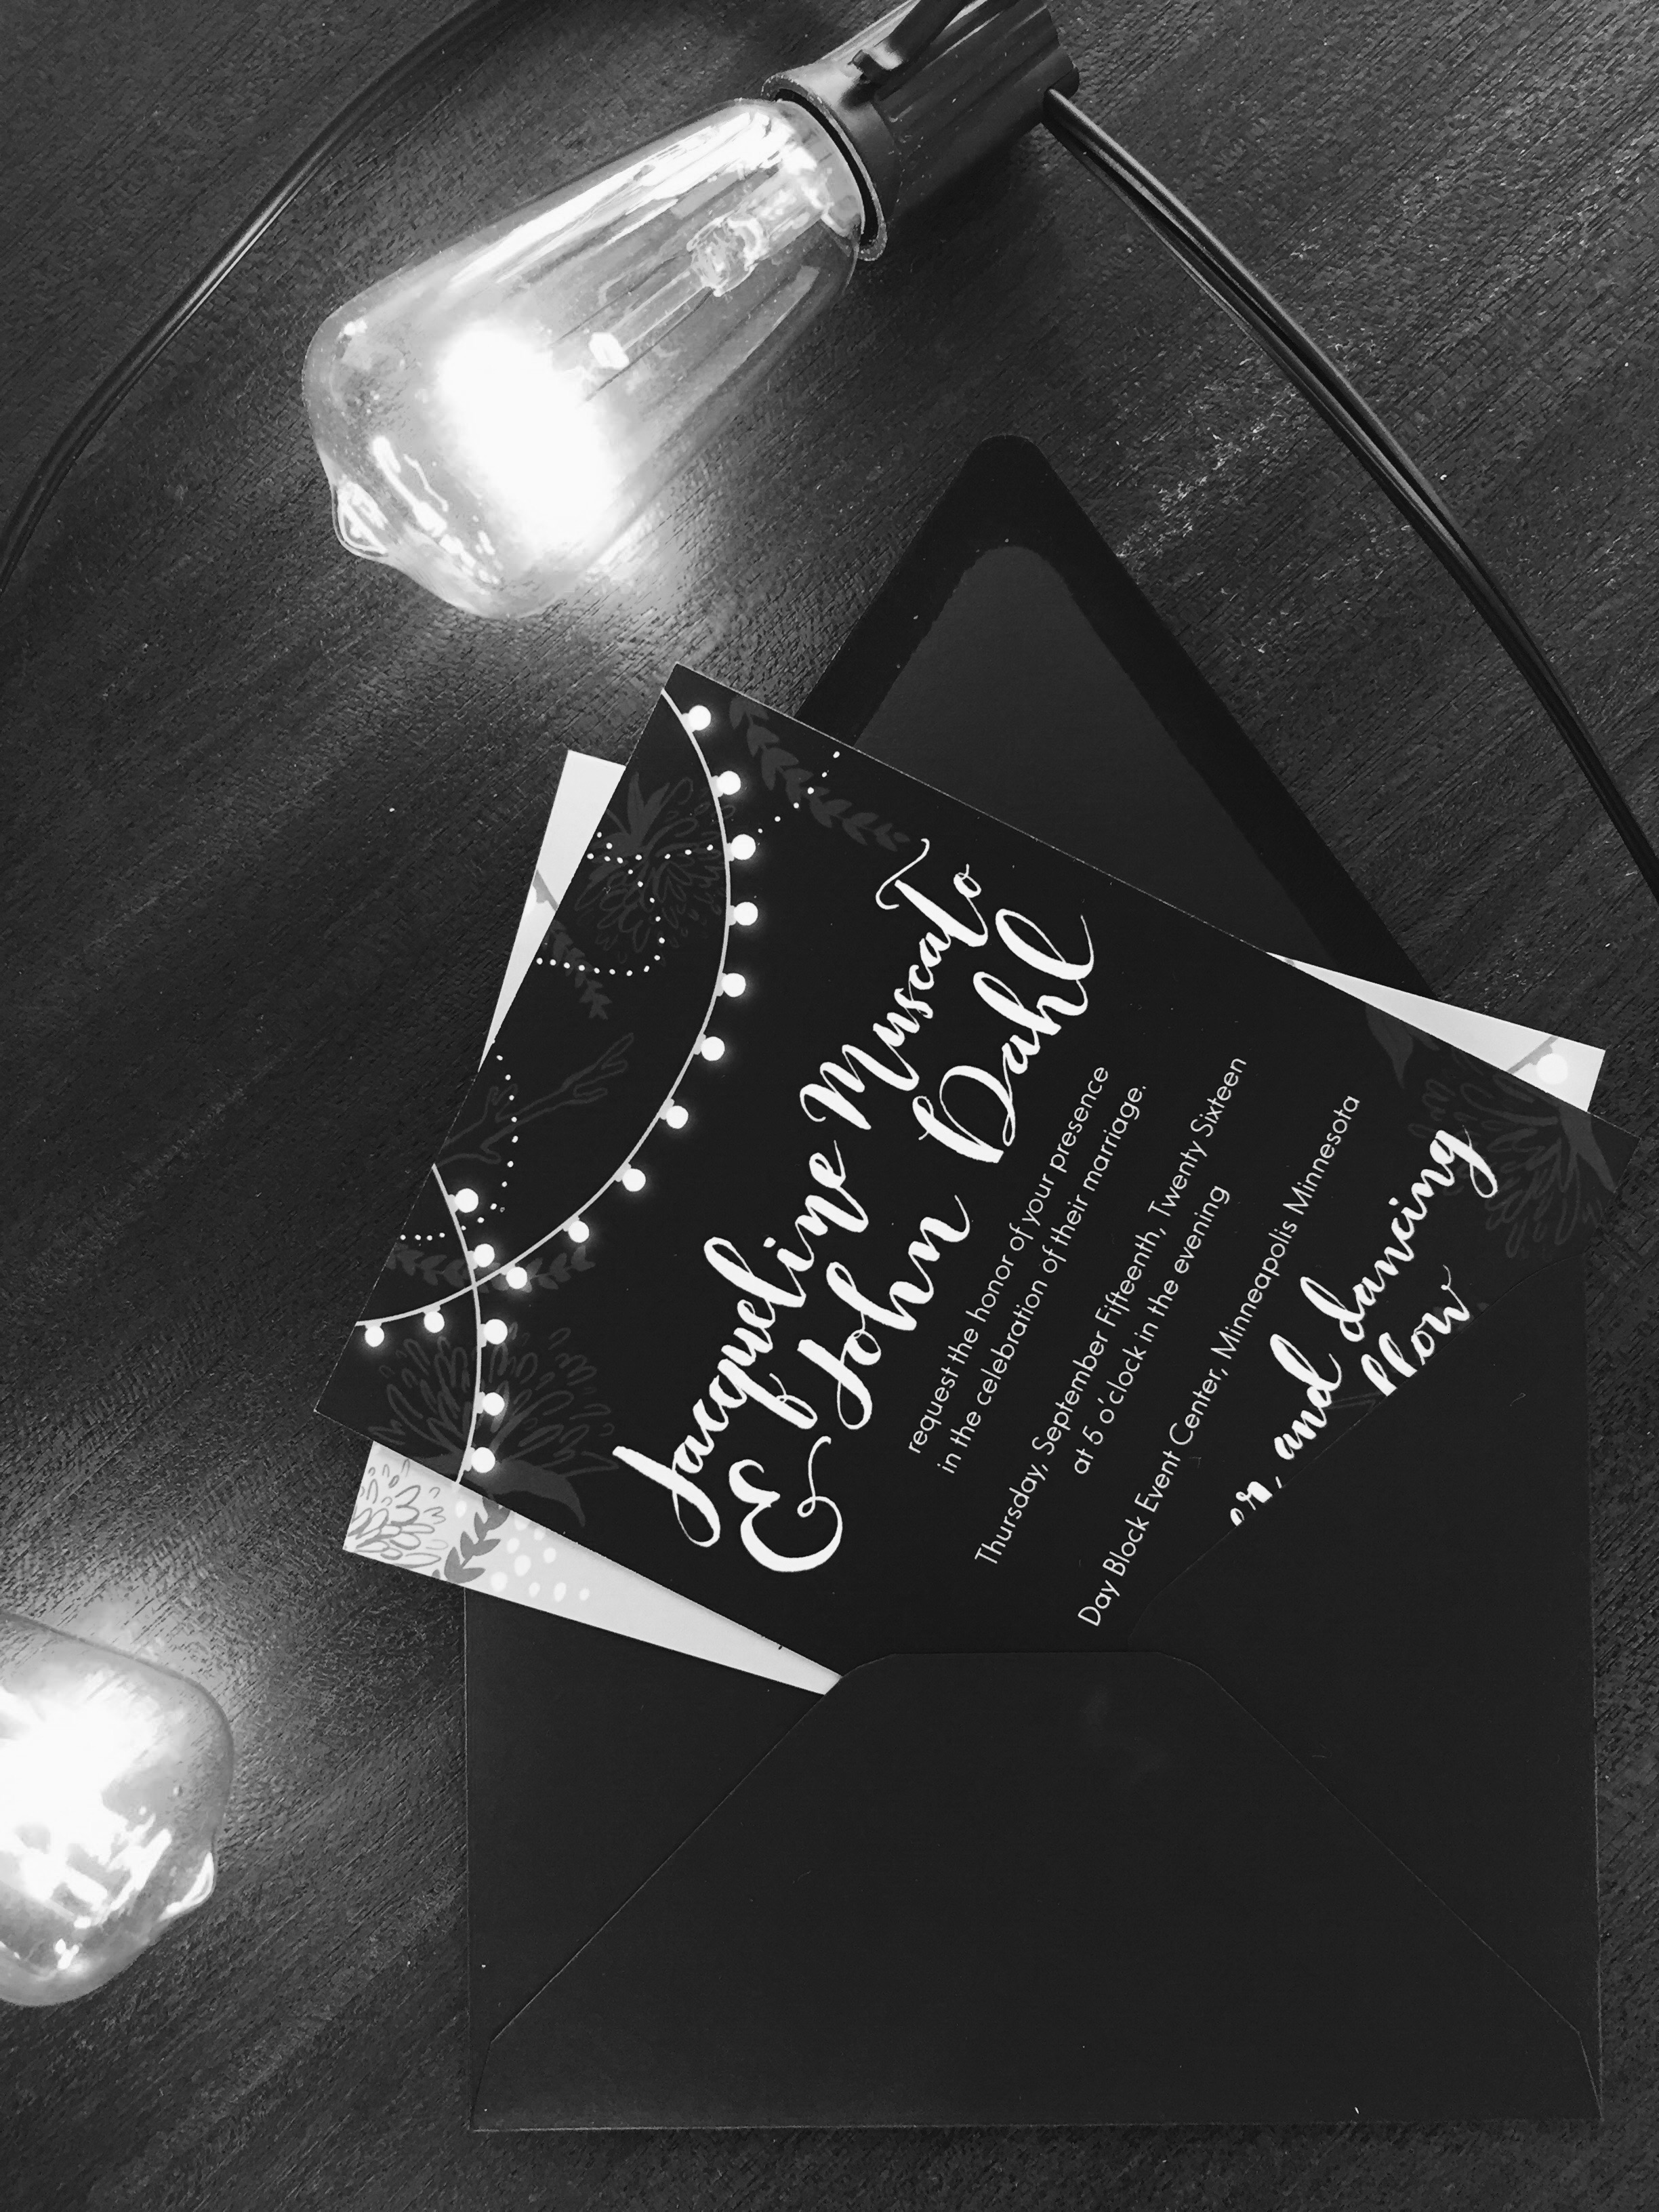 Jacqueline Muscato
& John Dahl
request the honor of your presence
in the celebration of their marriage.
Thursday, September Fifteenth, Twenty Sixteen
at 5 o'clock in the evening
Day Block Event Center, Minneapolis Minnesota
and dancing